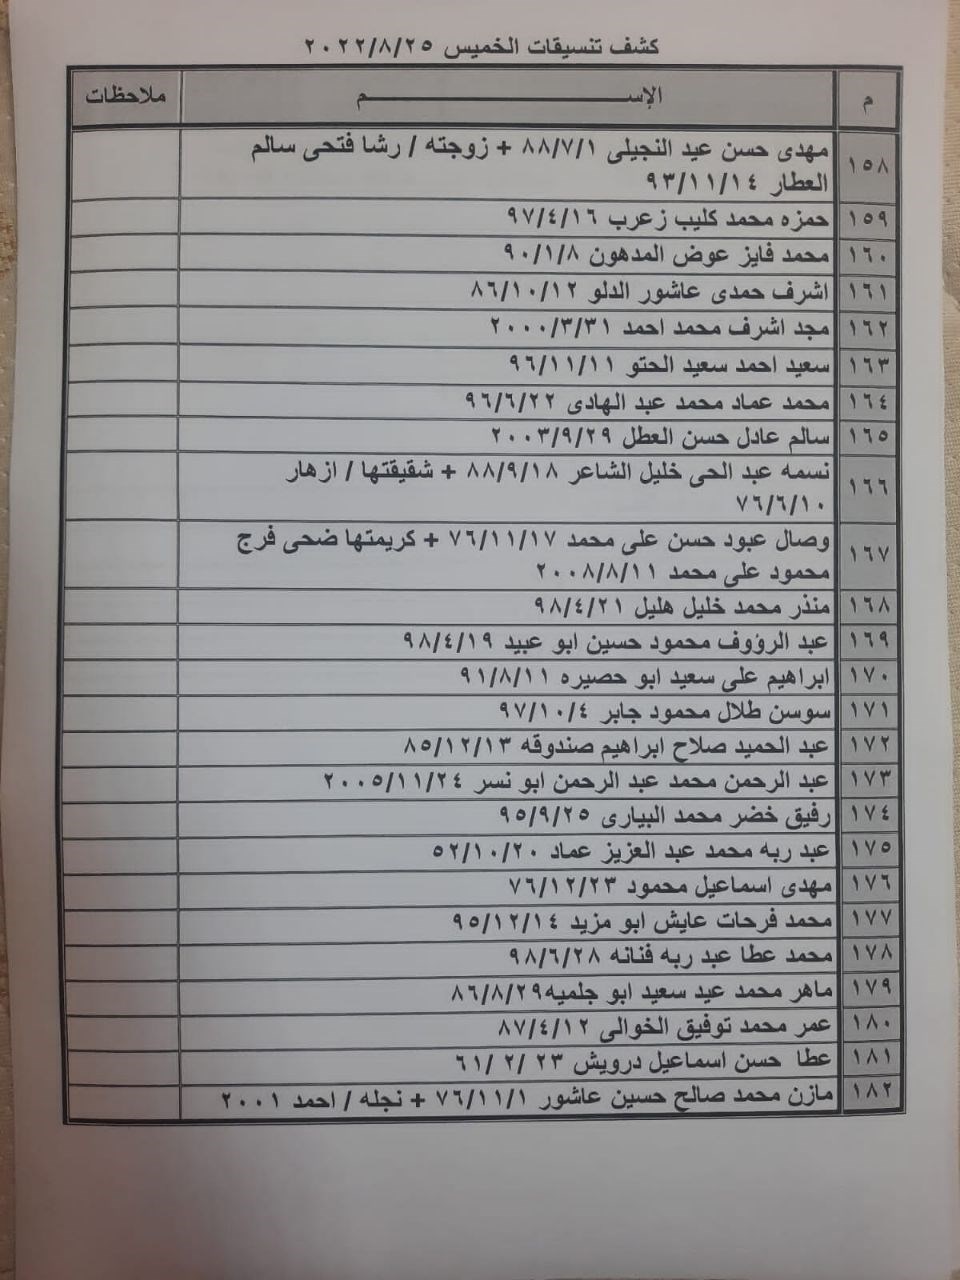 كشف تنسيقات الخميس ٢٠٢٢/٨/٢٥
م الإســـــــــم ملاحظات
١٥٨ مهدى حسن عيد النجيلى ٨٨/٧/١ + زوجته / رشا فتحى سالم
العطار ٩٣/١١/١٤
١٥٩ حمزه محمد كليب زعرب ٩٧/٤/١٦
١٦٠ محمد فايز عوض المدهون ٩٠/١/٨
١٦١ اشرف حمدى عاشور الدلو ٨٦/١٠/١٢
١٦٢ مجد اشرف محمد احمد ٢٠٠٠/٣/٣١
١٦٣ سعيد احمد سعيد الحتو ٩٦/١١/١١
١٦٤ محمد عماد محمد عبد الهادى ٩٦/٦/٢٢
١٦٥ سالم عادل حسن العطل ٢٠٠٣/٩/٢٩
١٦٦ نسمه عبد الحى خليل الشاعر ٨٨/٩/١٨ + شقيقتها / ازهار
٧٦/٦/١٠
١٦٧ وصال عبود حسن على محمد ٧٦/١١/١٧ + كريمتها ضحى فرج
محمود على محمد ٢٠٠٨/٨/١١
١٦٨ منذر محمد خليل هليل ٩٨/٤/٢١
١٦٩ عبد الرؤوف محمود حسين ابو عبيد ٩٨/٤/١٩
١٧٠ ابراهيم على سعيد ابو حصيره ٩١/٨/١١
١٧١ سوسن طلال محمود جابر ٩٧/١٠/٤
١٧٢ عبد الحميد صلاح ابراهيم صندوقه ٨٥/١٢/١٣
١٧٣ عبد الرحمن محمد عبد الرحمن ابو نسر ٢٠٠٥/١١/٢٤
١٧٤ رفيق خضر محمد البيارى ٩٥/٩/٢٥
١٧٥ عبد ربه محمد عبد العزيز عماد ٥٢/١٠/٢٠
١٧٦ مهدى اسماعيل محمود ٧٦/١٢/٢٣
١٧٧ محمد فرحات عايش ابو مزيد ٩٥/١٢/١٤
١٧٨ محمد عطا عبد ربه فنانه ٩٨/٦/٢٨
١٧٩ ماهر محمد عيد سعيد ابو جلميه٨٦/٨/٢٩
١٨٠ عمر محمد توفيق الخوالى ٨٧/٤/١٢
١٨١ عطا حسن اسماعيل درويش ٢٣ /٢ /٦١
١٨٢ مازن محمد صالح حسين عاشور ٧٦/١١/١ + نجله / احمد ٢٠٠١